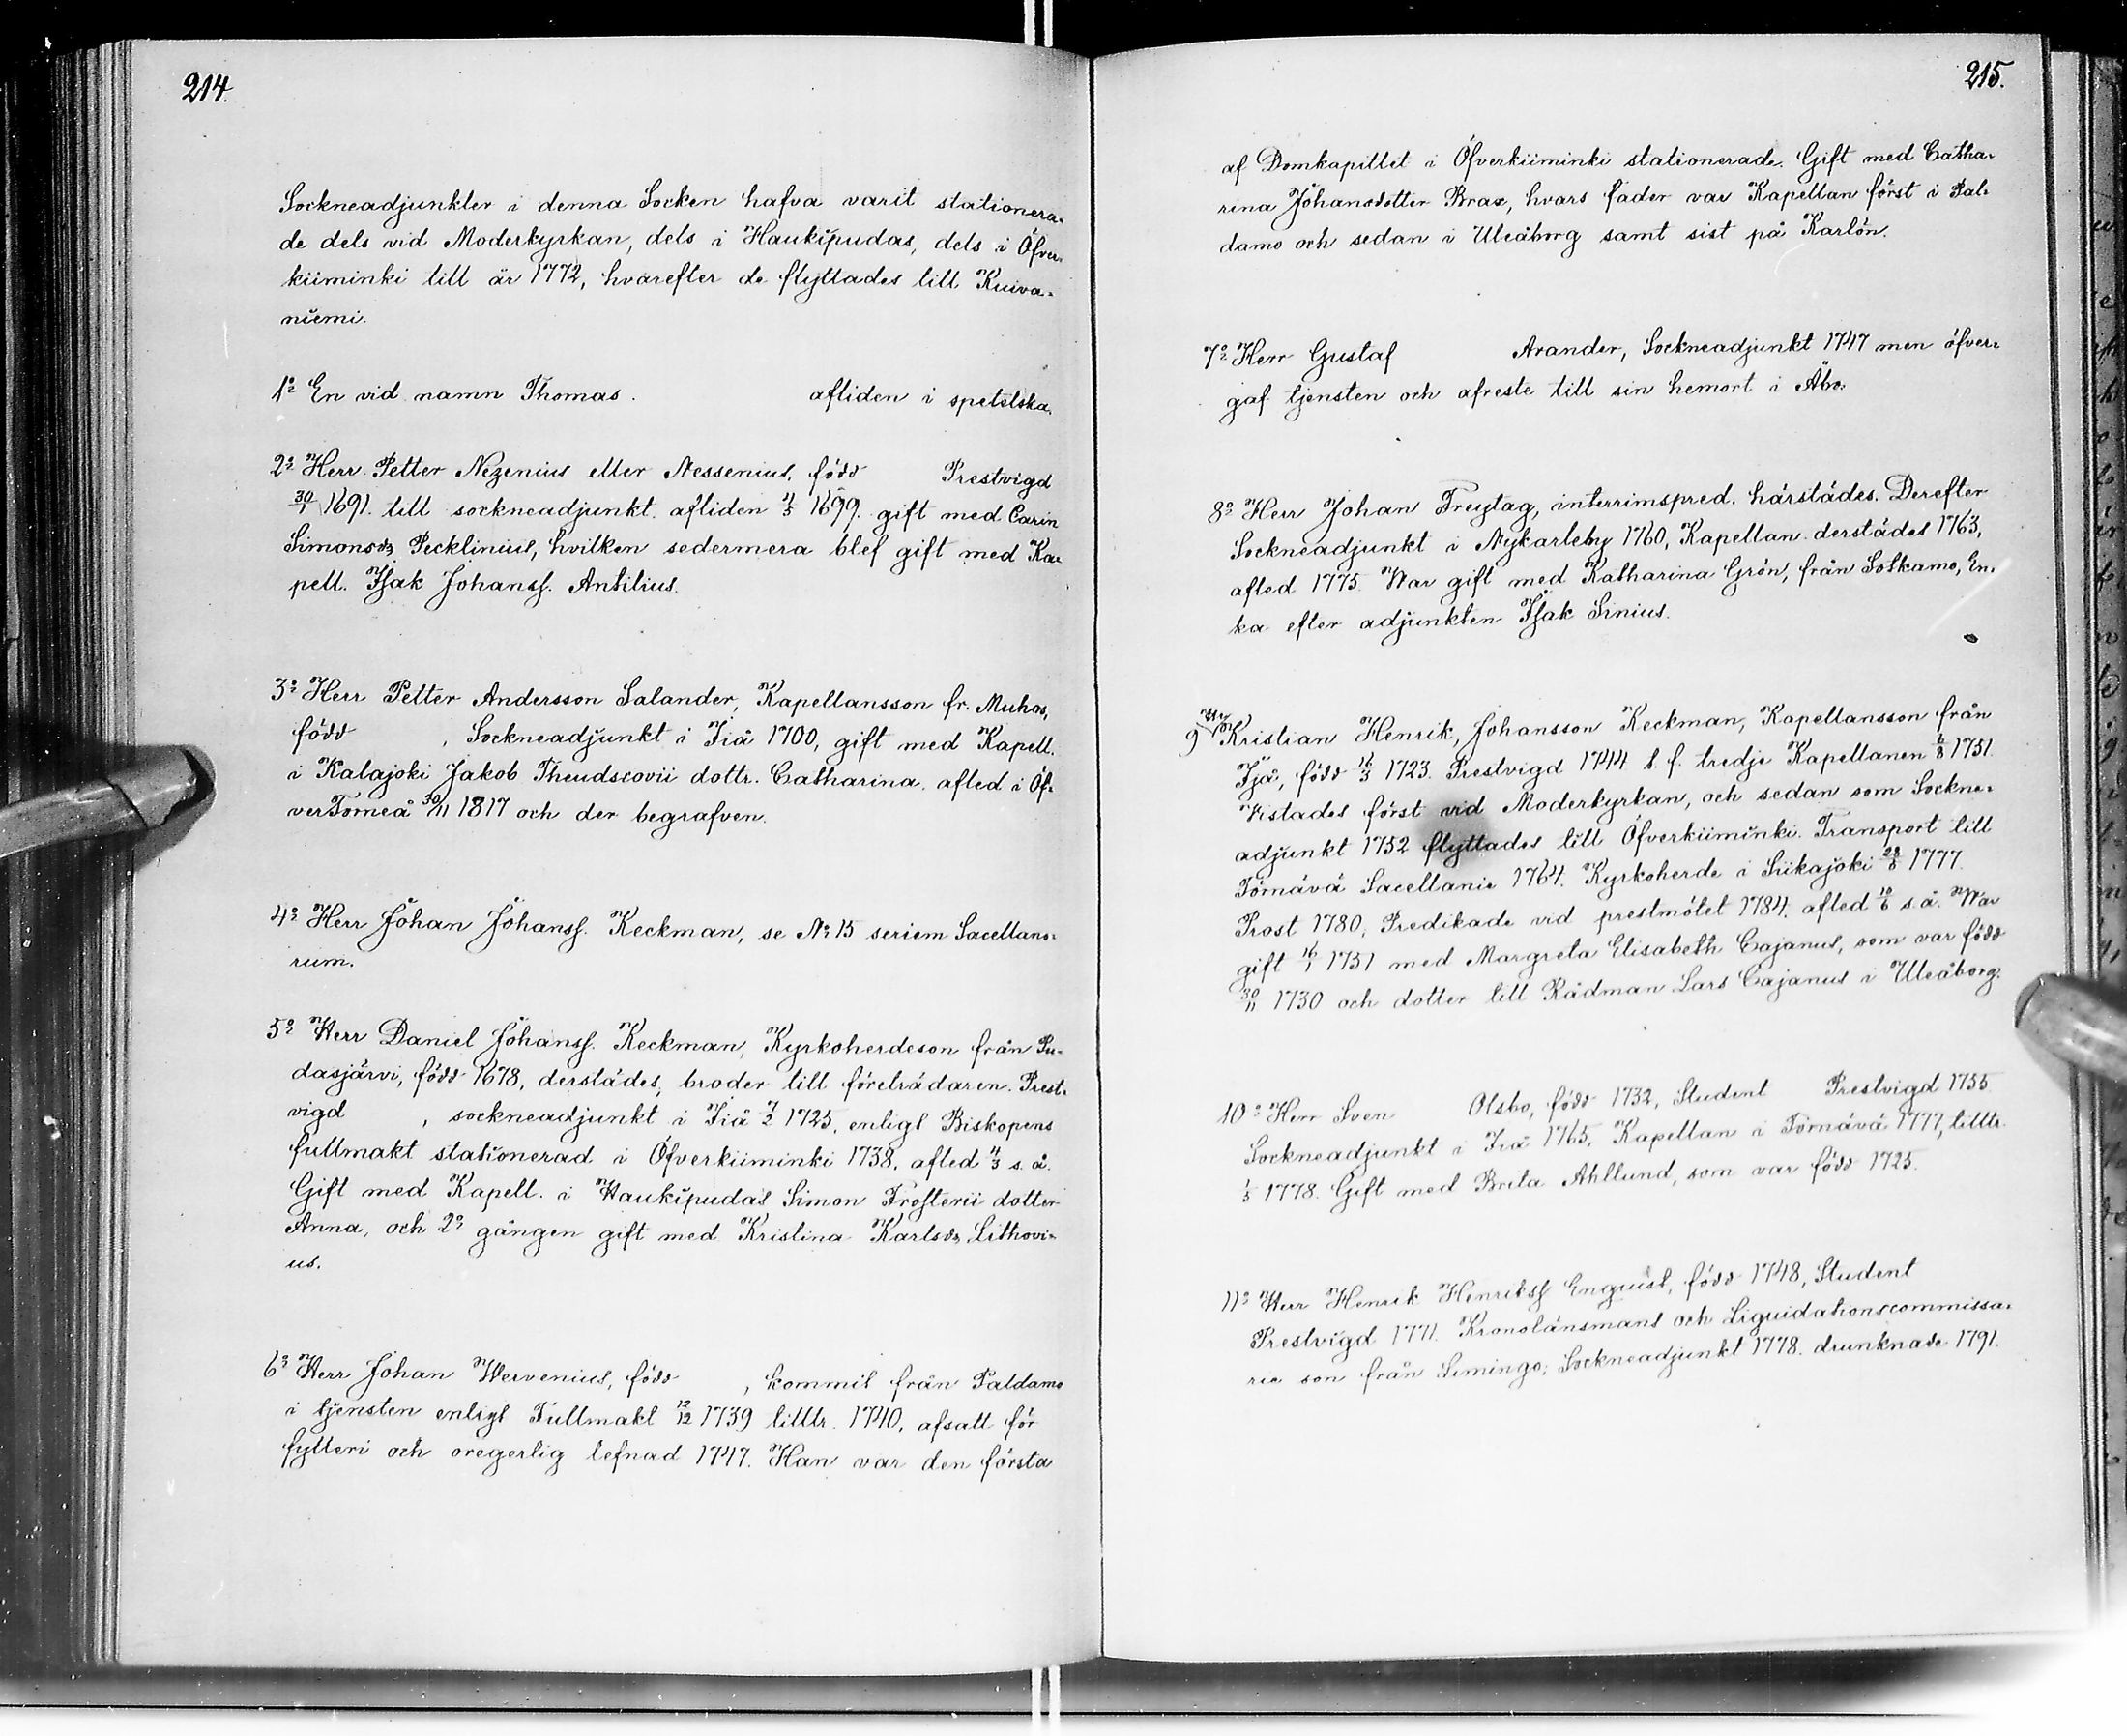 214.
Sockneadjunkter i denna Socken hafva varit stationera-
de dels vid Moderkyrkan, dels i Haukipudas, dels i Öfver-
kiiminki till år 1772, hvarefter de flyttades till Kuiva-
niemi.
1o En vid namn Thomas. afliden i spetelska.
2o Herr Petter Nezenius eller Nessenius, född Prestvigd
30/1 1691. till sockneadjunkt. afliden 4/3 1699. gift med Carin
Simonsdr Pecklinius, hvilken sedermera blef gift med Ka-
pell. Isak Johanss. Antilius.
3o Herr Petter Andersson Salander, Kapellansson fr. Muhos,
född , Sockneadjunkt i Iiå 1700, gift med Kapell.
i Kalajoki Jakob Theudscovii dottr. Catharina. afled i Öf-
verTorneå 30/11 1817 och der begrafven.
4o Herr Johan Johanss. Keckman, se No 15 seriem Sacellano-
rum.
5o Herr Daniel Johanss. Keckman, Kyrkoherdeson från Pu-
dasjärvi, född 1678, derstädes, broder till företrädaren. Prest-
vigd , sockneadjunkt i Iiå 7/2 1725, enligt Biskopens
fullmakt stationerad i Öfverkiiminki 1738. afled 4/3 s. å.
Gift med Kapell. i Haukipudas Simon Frosterii dotter
Anna, och 2o gången gift med Kristina Karlsdr Lithovi-
us.
6o Herr Johan Wervenius, född , kommit från Paldamo
i tjensten enligt Fullmakt 12/12 1739 tilltr. 1740, afsatt för
fylleri och oregerlig lefnad 1747. Han var den första
215.
af Domkapitlet i Öfverkiiminki stationerade. Gift med Catha-
rina Johansdotter Brax, hvars fader var Kapellan först i Pal-
damo och sedan i Uleåborg samt sist på Karlön.
7o Herr Gustaf Arander, Sockneadjunkt 1747 men öfver-
gaf tjensten och afreste till sin hemort i Åbo.
8o Herr Johan Freytag, interrimspred. härstädes. Derefter
Sockneadjunkt i Nykarleby 1760, Kapellan derstädes 1763,
afled 1775. War gift med Katharina Grön, från Sotkamo, En-
ka efter adjunkten Isak Sinius.
9 Kristian Henrik, Johansson Keckman, Kapellansson från
Ijå, född 16/3 1723. Prestvigd 1744 t. f. tredje Kapellanen 6/8 1751.
Vistades först vid Moderkyrkan, och sedan som Sockne-
adjunkt 1752 flyttades till Öfverkiiminki. Transport till
Törnävä Sacellanie 1764. Kyrkoherde i Siikajoki 28/8 1777.
Prost 1780, Predikade vid prestmötet 1784. afled 10/6 s. å. War
gift 16/1 1751 med Margreta Elisabeth Cajanus, som var född
30/11 1730 och dotter till Rådman Lars Cajanus i Uleåborg.
10o Herr Sven Olsbo, född 1732, Student Prestvigd 1755
Sockneadjunkt i Iiå 1765, Kapellan i Törnävä 1777, tilltr.
1/5 1778. Gift med Brita Ahllund, som var född 1725.
11o Herr Henrik Henrikss Enquist, född 1748, Student
Prestvigd 1771. Kronolänsmans och Liquidationscommissa-
rie son från Limingo; Sockneadjunkt 1778. drunknade 1791.